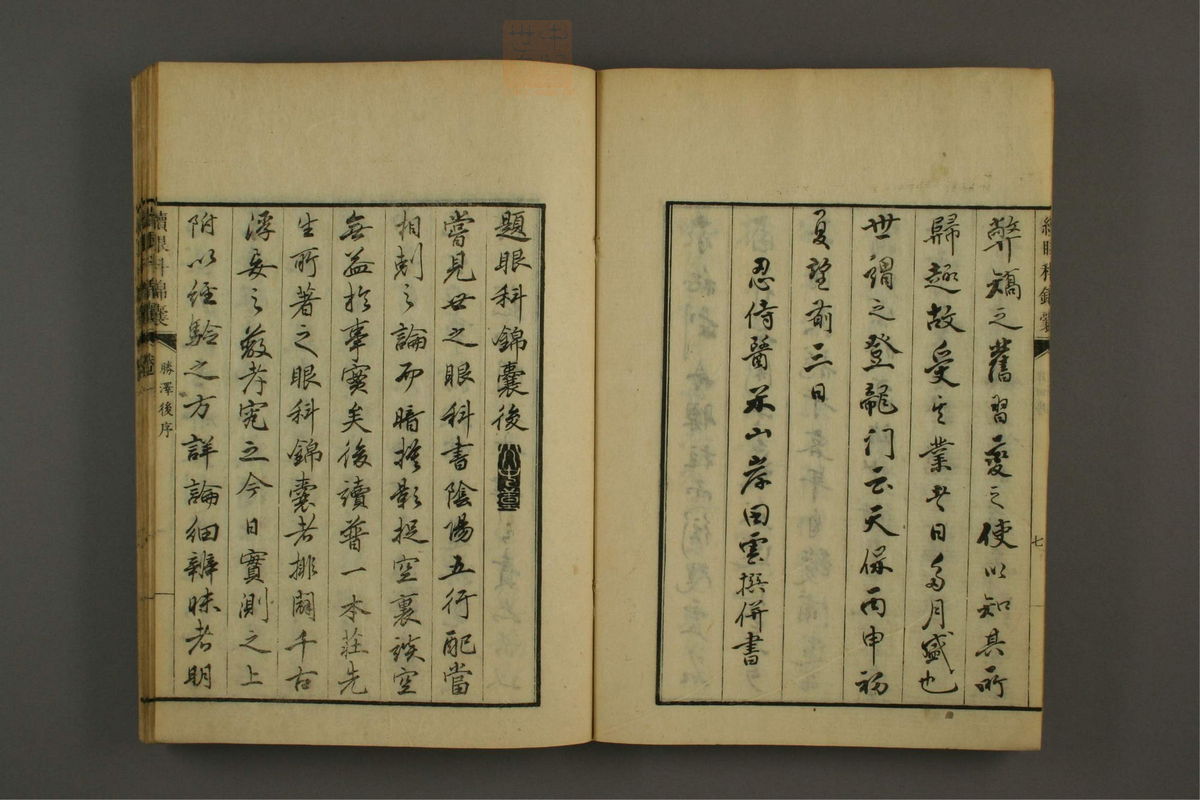 弊矯之舊習愛之使以知其所
歸趣故受其業者日多月盛也
世謂之登龍门云天保丙申初
夏望前三日
忍侍醫米山岸田雲撰併書
題眼科錦囊後
嘗見世之眼科書陰陽五行配當
相剋之論而暗摸影捉空裏談空
無益於事實矣後讀普一本莊先
生所著之眼科錦囊者排闢千古
浮妄之藪考究之今日實測之上
附以經驗之方詳論細辨昧者明
續眼科錦囊
勝澤後序
一
七